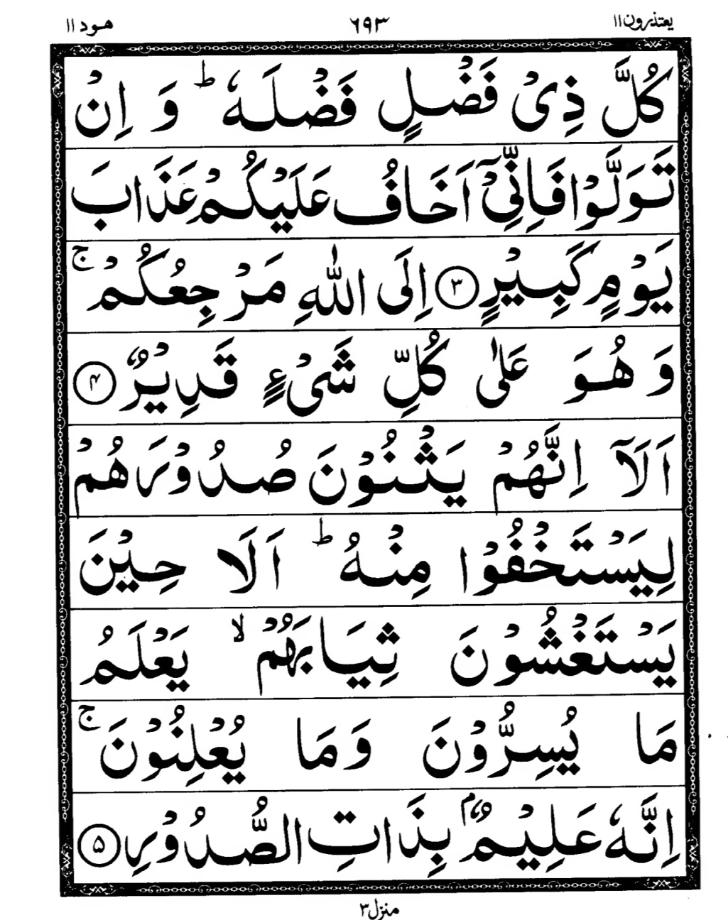 یعتذرون۱۱ ۶۹۳ ھود۱۱
كُلَّ ذِىْ فَضْلٍ فَضْلَهٗ ؕ وَ اِنْ
تَوَلَّوْا فَاِنِّىْۤ اَخَافُ عَلَيْكُمْ عَذَابَ
يَوْمٍ كَبِيْرٍ ۳ اِلَى اللّٰهِ مَرْجِعُكُمْ ۚ
وَ هُوَ عَلٰى كُلِّ شَىْءٍ قَدِيْرٌ ۴
اَلَاۤ اِنَّهُمْ يَثْنُوْنَ صُدُوْرَهُمْ
لِيَسْتَخْفُوْا مِنْهُ ؕ اَلَا حِيْنَ
يَسْتَغْشُوْنَ ثِيَابَهُمْ ۙ يَعْلَمُ
مَا يُسِرُّوْنَ وَمَا يُعْلِنُوْنَ ۚ
اِنَّهٗ عَلِيْمٌۢ بِذَاتِ الصُّدُوْرِ ۵
منزل۳